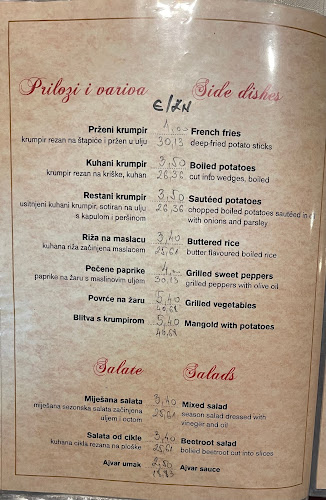 Prilozi i variva Side dishes
€/KN
Prženi krumpir 4,00 French fries
krumpir rezan na štapiće i pržen u ulju 30,13 deep-fried potato sticks
Kuhani krumpir 3,50 Boiled potatoes
krumpir rezan na kriške, kuhan 26,36 cut into wedges, boiled
Restani krumpir 3,50 Sautéed potatoes
usitnjeni kuhani krumpir, sotiran na ulju 26,36 chopped boiled potatoes sautéed in
s kapulom i peršinom with onions and parsley
Riža na maslacu 3,40 Buttered rice
kuhana riža začinjena maslacem 25,61 butter flavoured boiled rice
Pečene paprike 4,00 Grilled sweet peppers
paprike na žaru s maslinovim uljem 30,13 grilled peppers with olive oil
Povrće na žaru 5,40 Grilled vegetables
40,68
Blitva s krumpirom 5,40 Mangold with potatoes
40,68
Salate Salads
Miješana salata 3,40 Mixed salad
miješana sezonska salata začinjena 25,61 season salad dressed with
uljem i octom vinegar and oil
Salata od cikle 3,40 Beetroot salad
kuhana cikla rezana na ploške 25,61 boiled beetroot cut into slices
Ajvar umak 2,50 Ajvar sauce